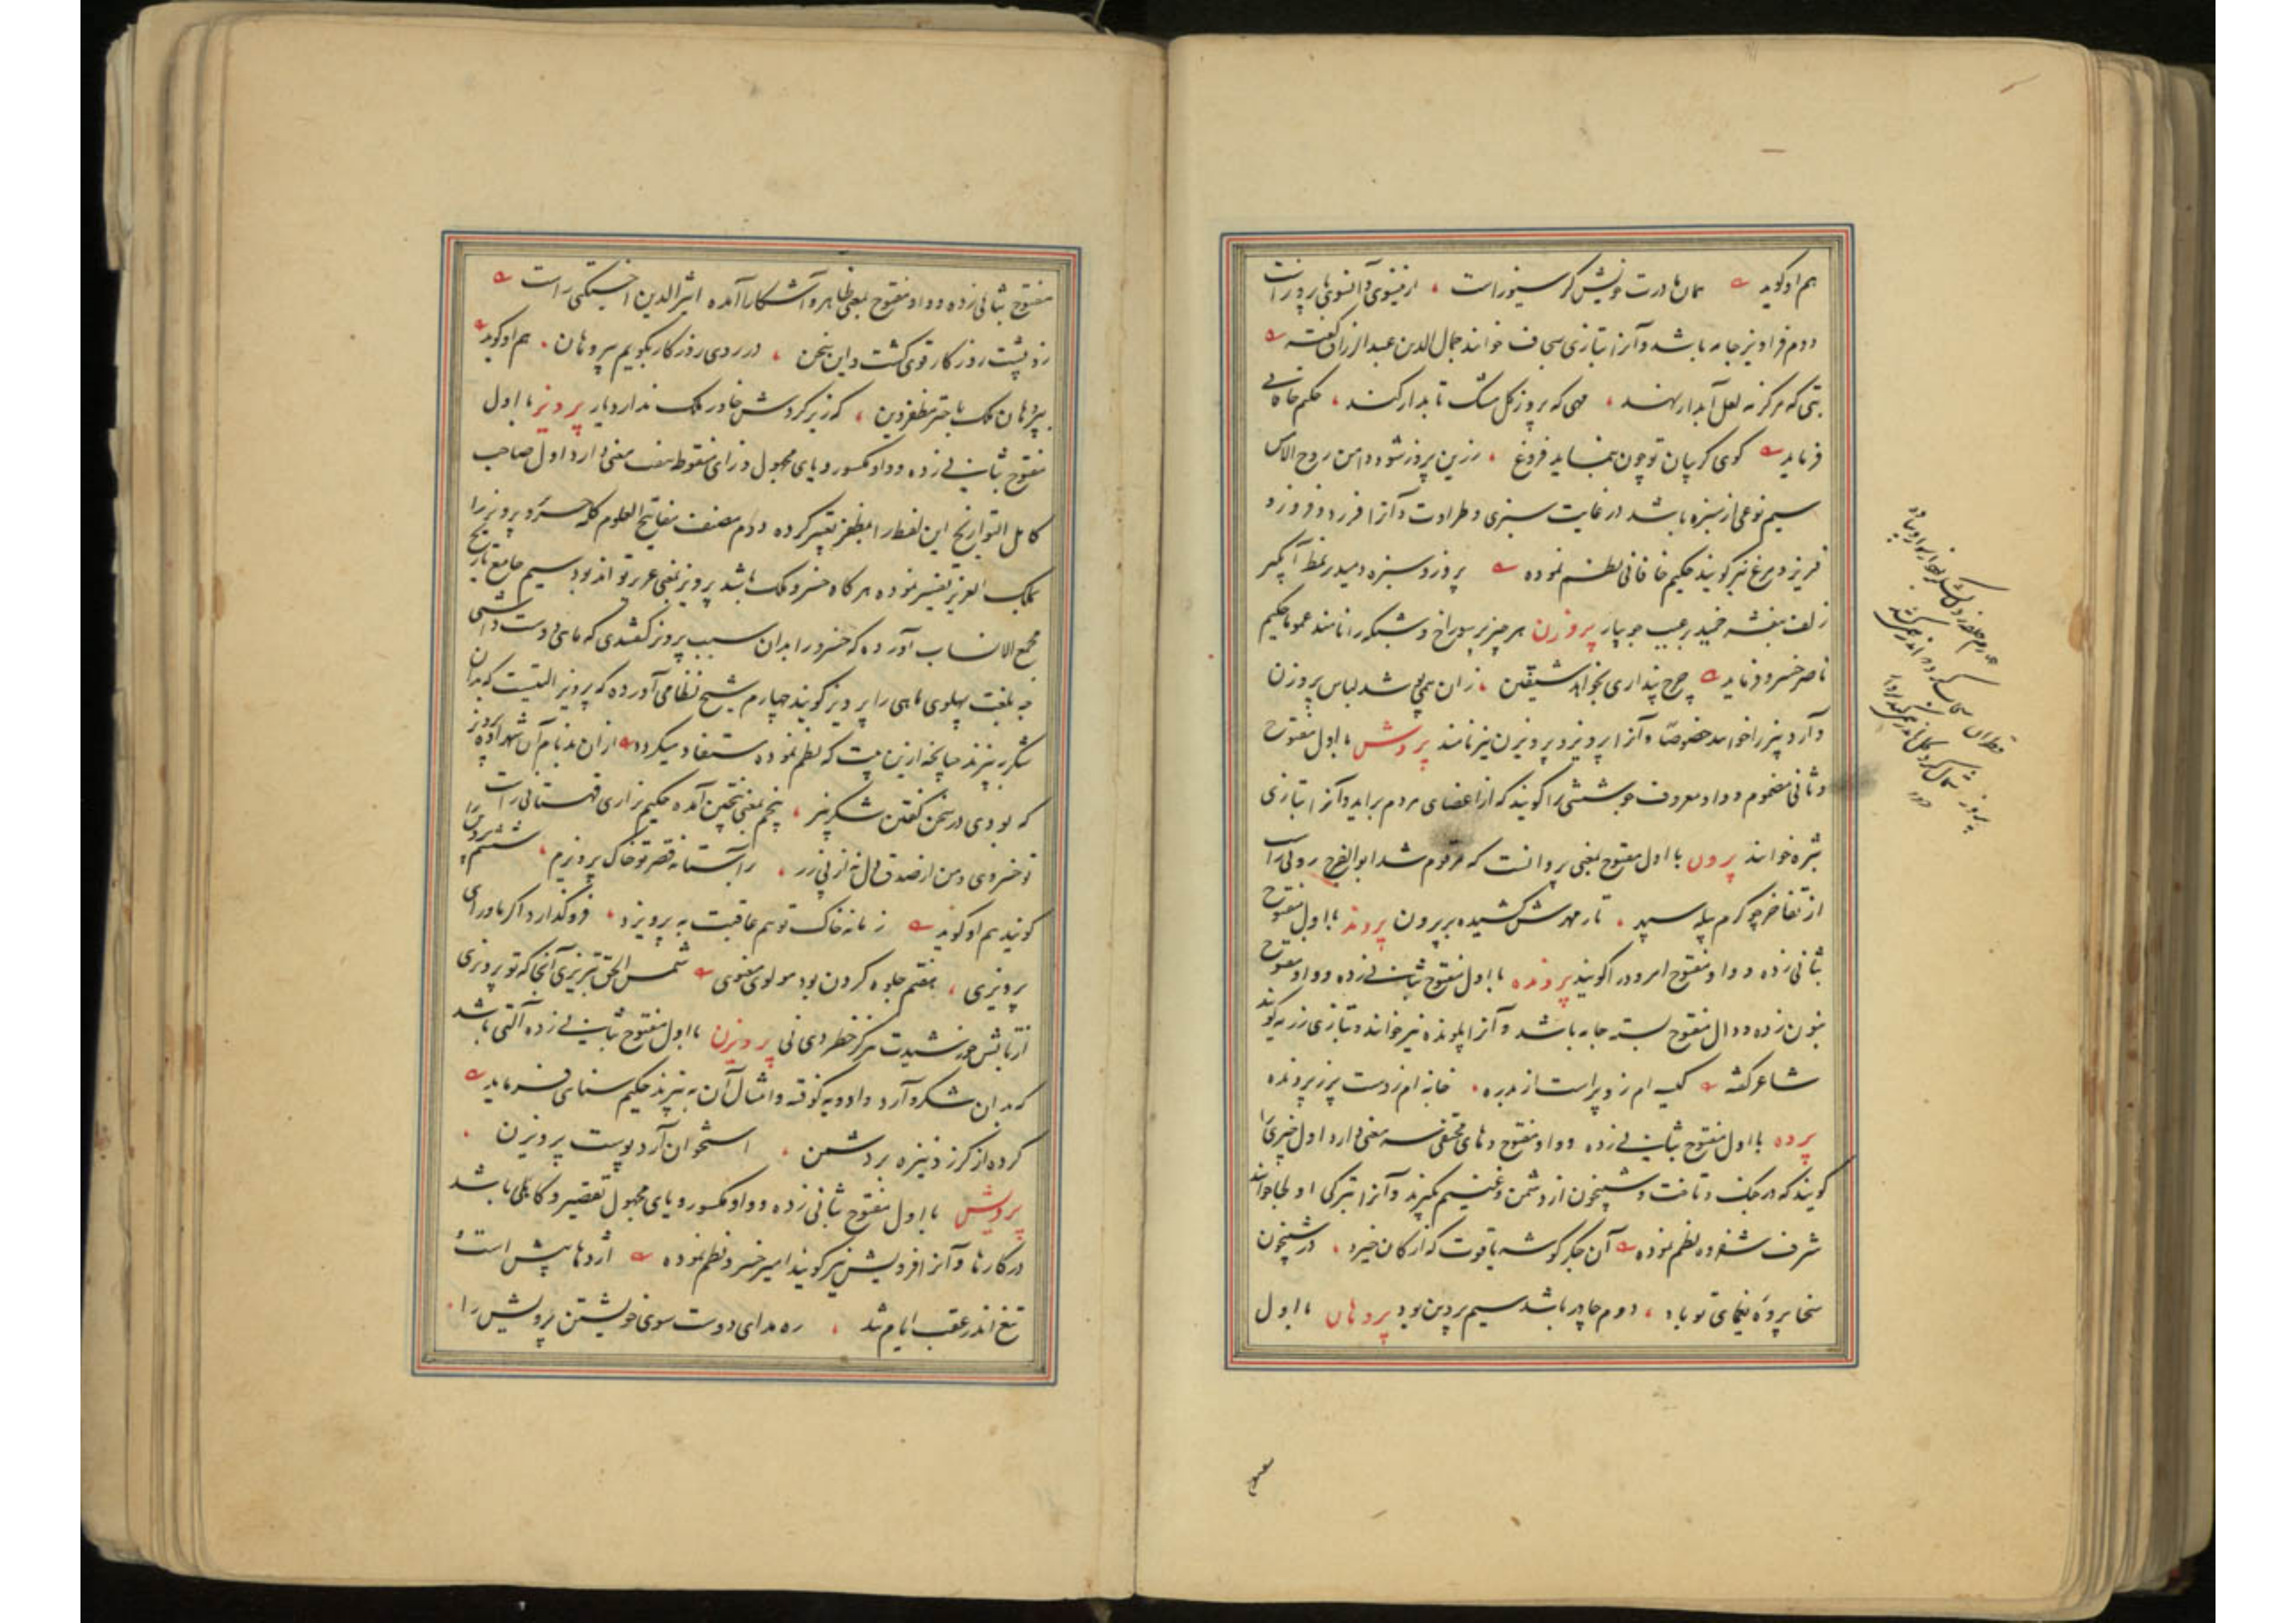 هم او گوید همان مادرت خویش کرسیوز است از ینسوی و آنسوی با پروز است
دوم فراویز جامه باشد و آنرا بتازی سجاف خوانند جمال الدین عبد الرزاق گفته
بتی که مرکز مه لعل آبدار نهند مهی که پروز گل مشک تابدار کنند حکیم خاقانی
فرماید گوی گریبان تو چون بنماید فروغ زرین پروز شود دامن روح الامین
سیم نوعی از سبزه باشد در غایت سبزی و طراوت و آنرا فرزد و فروزد و
فریز و مرغ نیز گویند حکیم خاقانی نظم نموده پروز و سبزه دمید بر نمط آبگیر
زلف بنفشه خمید بر غبب جویبار پروزن هر چیز پر سوراخ و مشبک را نامند عموما حکیم
ناصر خسرو فرماید چرخ پنداری بخواهد شیفتن زان همی پوشد لباس پروزن
و آرد بیز را خوانند خصوصا و آنرا پرویز و پرویزن نیز نامند پروش با اول مفتوح
و ثانی مضموم و واو معروف جوششی را گویند که از اعضای مردم براید و آنرا بتازی
بثره خوانند پرون با اول مفتوح بمعنی پروانست که مرقوم شد ابو الفرج رونی راست
از تفاخر چو کرم پیله سپهر تار مهرش کشیده بر پرون پروند با اول مفتوح
بثانی زده و واو مفتوح امرود را گویند پرونده با اول مفتوح بثانی زده و واو مفتوح
بنون زده و دال مفتوح بسته جامه باشد و آنرا پلونده نیز خوانند و بتازی رزمه گویند
شاعر گفته کیسه ام زو پر است از بدره خانه ام زوست پر ز پرونده
پروه با اول مفتوح بثانی زده و واو مفتوح و های مختفی سه معنی دارد اول چیزیرا
گویند که در جنگ و تاخت و شبیخون از دشمن و غنیم گیرند و آنرا بترکی اولجا خوانند
شرف شفروه نظم نموده آن جگر گوشه یاقوت که از کان خیزد در شبیخون
سخا پروه یغمای تو باد دوم چادر باشد سیم پروین بود پروهان با اول
مفتوح بثانی زده و واو مفتوح بمعنی ظاهر و آشکارا آمده اثیر الدین اخسیکتی راست
زو پشت روزگار قوی گشت و این سخن در روی روزگار بگویم پروهان هم او گوید
پروهان ملک باختر مظفر دین که زیر گردش خاور ملک ندارد یار پرویز با اول
مفتوح بثانی زده و واو مکسور و یای مجهول و زای منقوط هفت معنی دارد اول صاحب
کامل التواریخ این لفظ را بمظفر تعبیر کرده دوم مصنف مفاتیح العلوم کلمه خسرو پرویز را
بملک العزیز تفسیر نموده هر گاه خسرو ملک باشد پرویز بمعنی عزیز تواند بود سیم جامع تاریخ
مجمع الانساب آورده که خسرو را بدان سبب پرویز گفتندی که ماهی دوست داشتی
چه بلغت پهلوی ماهی را پرویز گویند چهارم شیخ نظامی آورده که پرویز آلتیست که بدان
شکر بیزند چنانچه ازین بیت که نظم نموده مستفاد میگردد ازان بد نام آن شهزاده پرویز
که بودی در سخن گفتن شکر بیز پنجم بمعنی بیختن آمده حکیم نزاری قهستانی راست
تو خسروی و من از صدق دل نه از پی زر بر آستانه قصر تو خاک پرویزم ششم
گویند هم او گوید زمانه خاک تو هم عاقبت به پرویزد فرو گذارد اگر ماورای
پرویزی هفتم جلوه کردن بود مولوی معنوی شمس الحق تبریزی آنجا که تو پرویزی
از تابش خورشیدت هرگز خطر دی نی پرویزن با اول مفتوح بثانی زده آلتی باشد
که بدان شکر و آرد و ادویه کوفته و امثال آن به بیزند حکیم سنائی فرماید
کرده از گرز و نیزه بر دشمن استخوان آرد و پوست پرویزن
پرویش با اول مفتوح بثانی زده و واو مکسور و یای مجهول تقصیر و کاهلی باشد
در کارها و آنرا فرویش نیز گویند امیر خسرو نظم نموده اژدها پیش است و
تیغ اندر عقب ایام شد ره مده ای دوست سوی خویشتن پرویش را